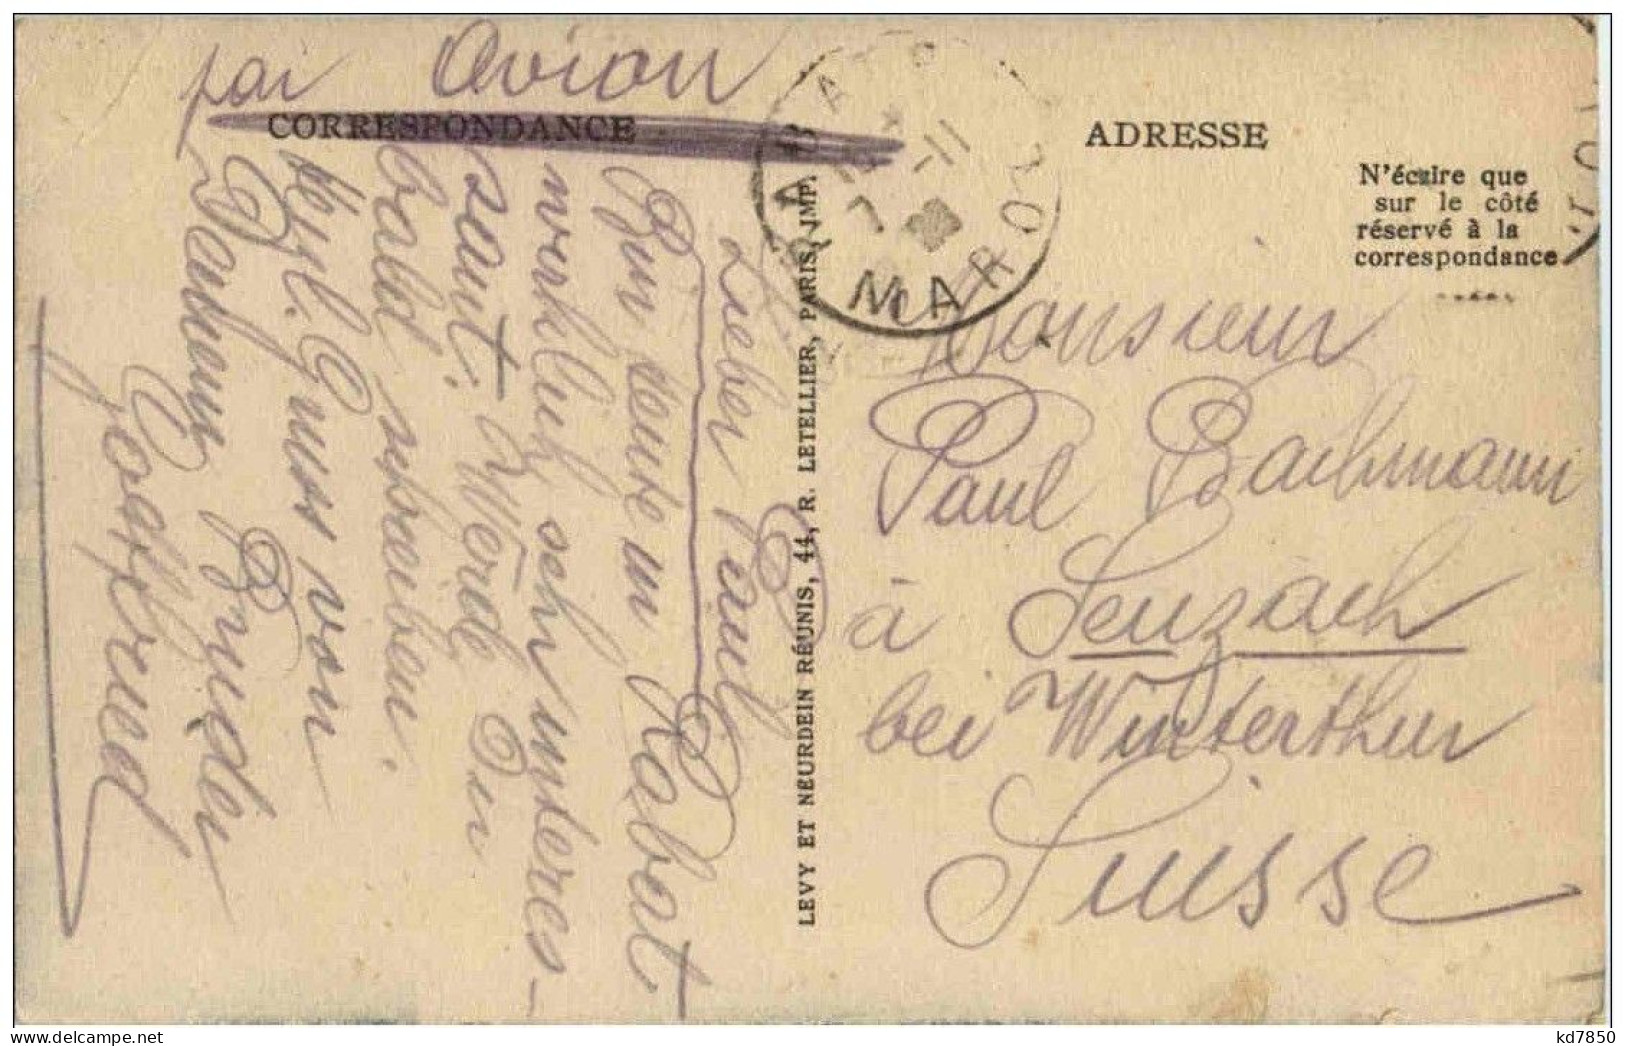 par Avion
CORRESPONDANCE
Lieber Paul!
Bin heute in Rabat
wirklich sehr interes-
sant. Werde Dir
bald schreiben.
Herzl. Gruss von
Deinem Bruder
Gottfried
LEVY ET NEURDEIN RÉUNIS, 44, R. LETELLIER, PARIS, IMP.
RABAT
7 -11
MAROC
ADRESSE
N'écrire que
sur le côté
réservé à la
correspondance
Monsieur
Paul Bachmann
à Seuzach
bei Winterthur
Suisse
kd7850